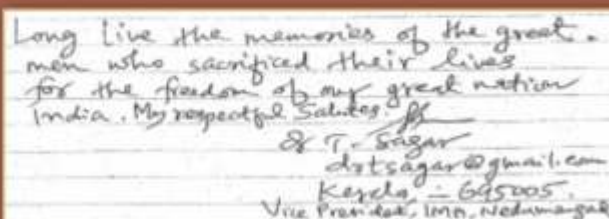 Long live the memories of the great.
men who sacrificed their lives
for the freedom of our great nation
India. My respectful Salutes.
Dr T. Sagar
drtsagar@gmail.com
Kerala - 695005.
Vice President, IMA, Nedumangad